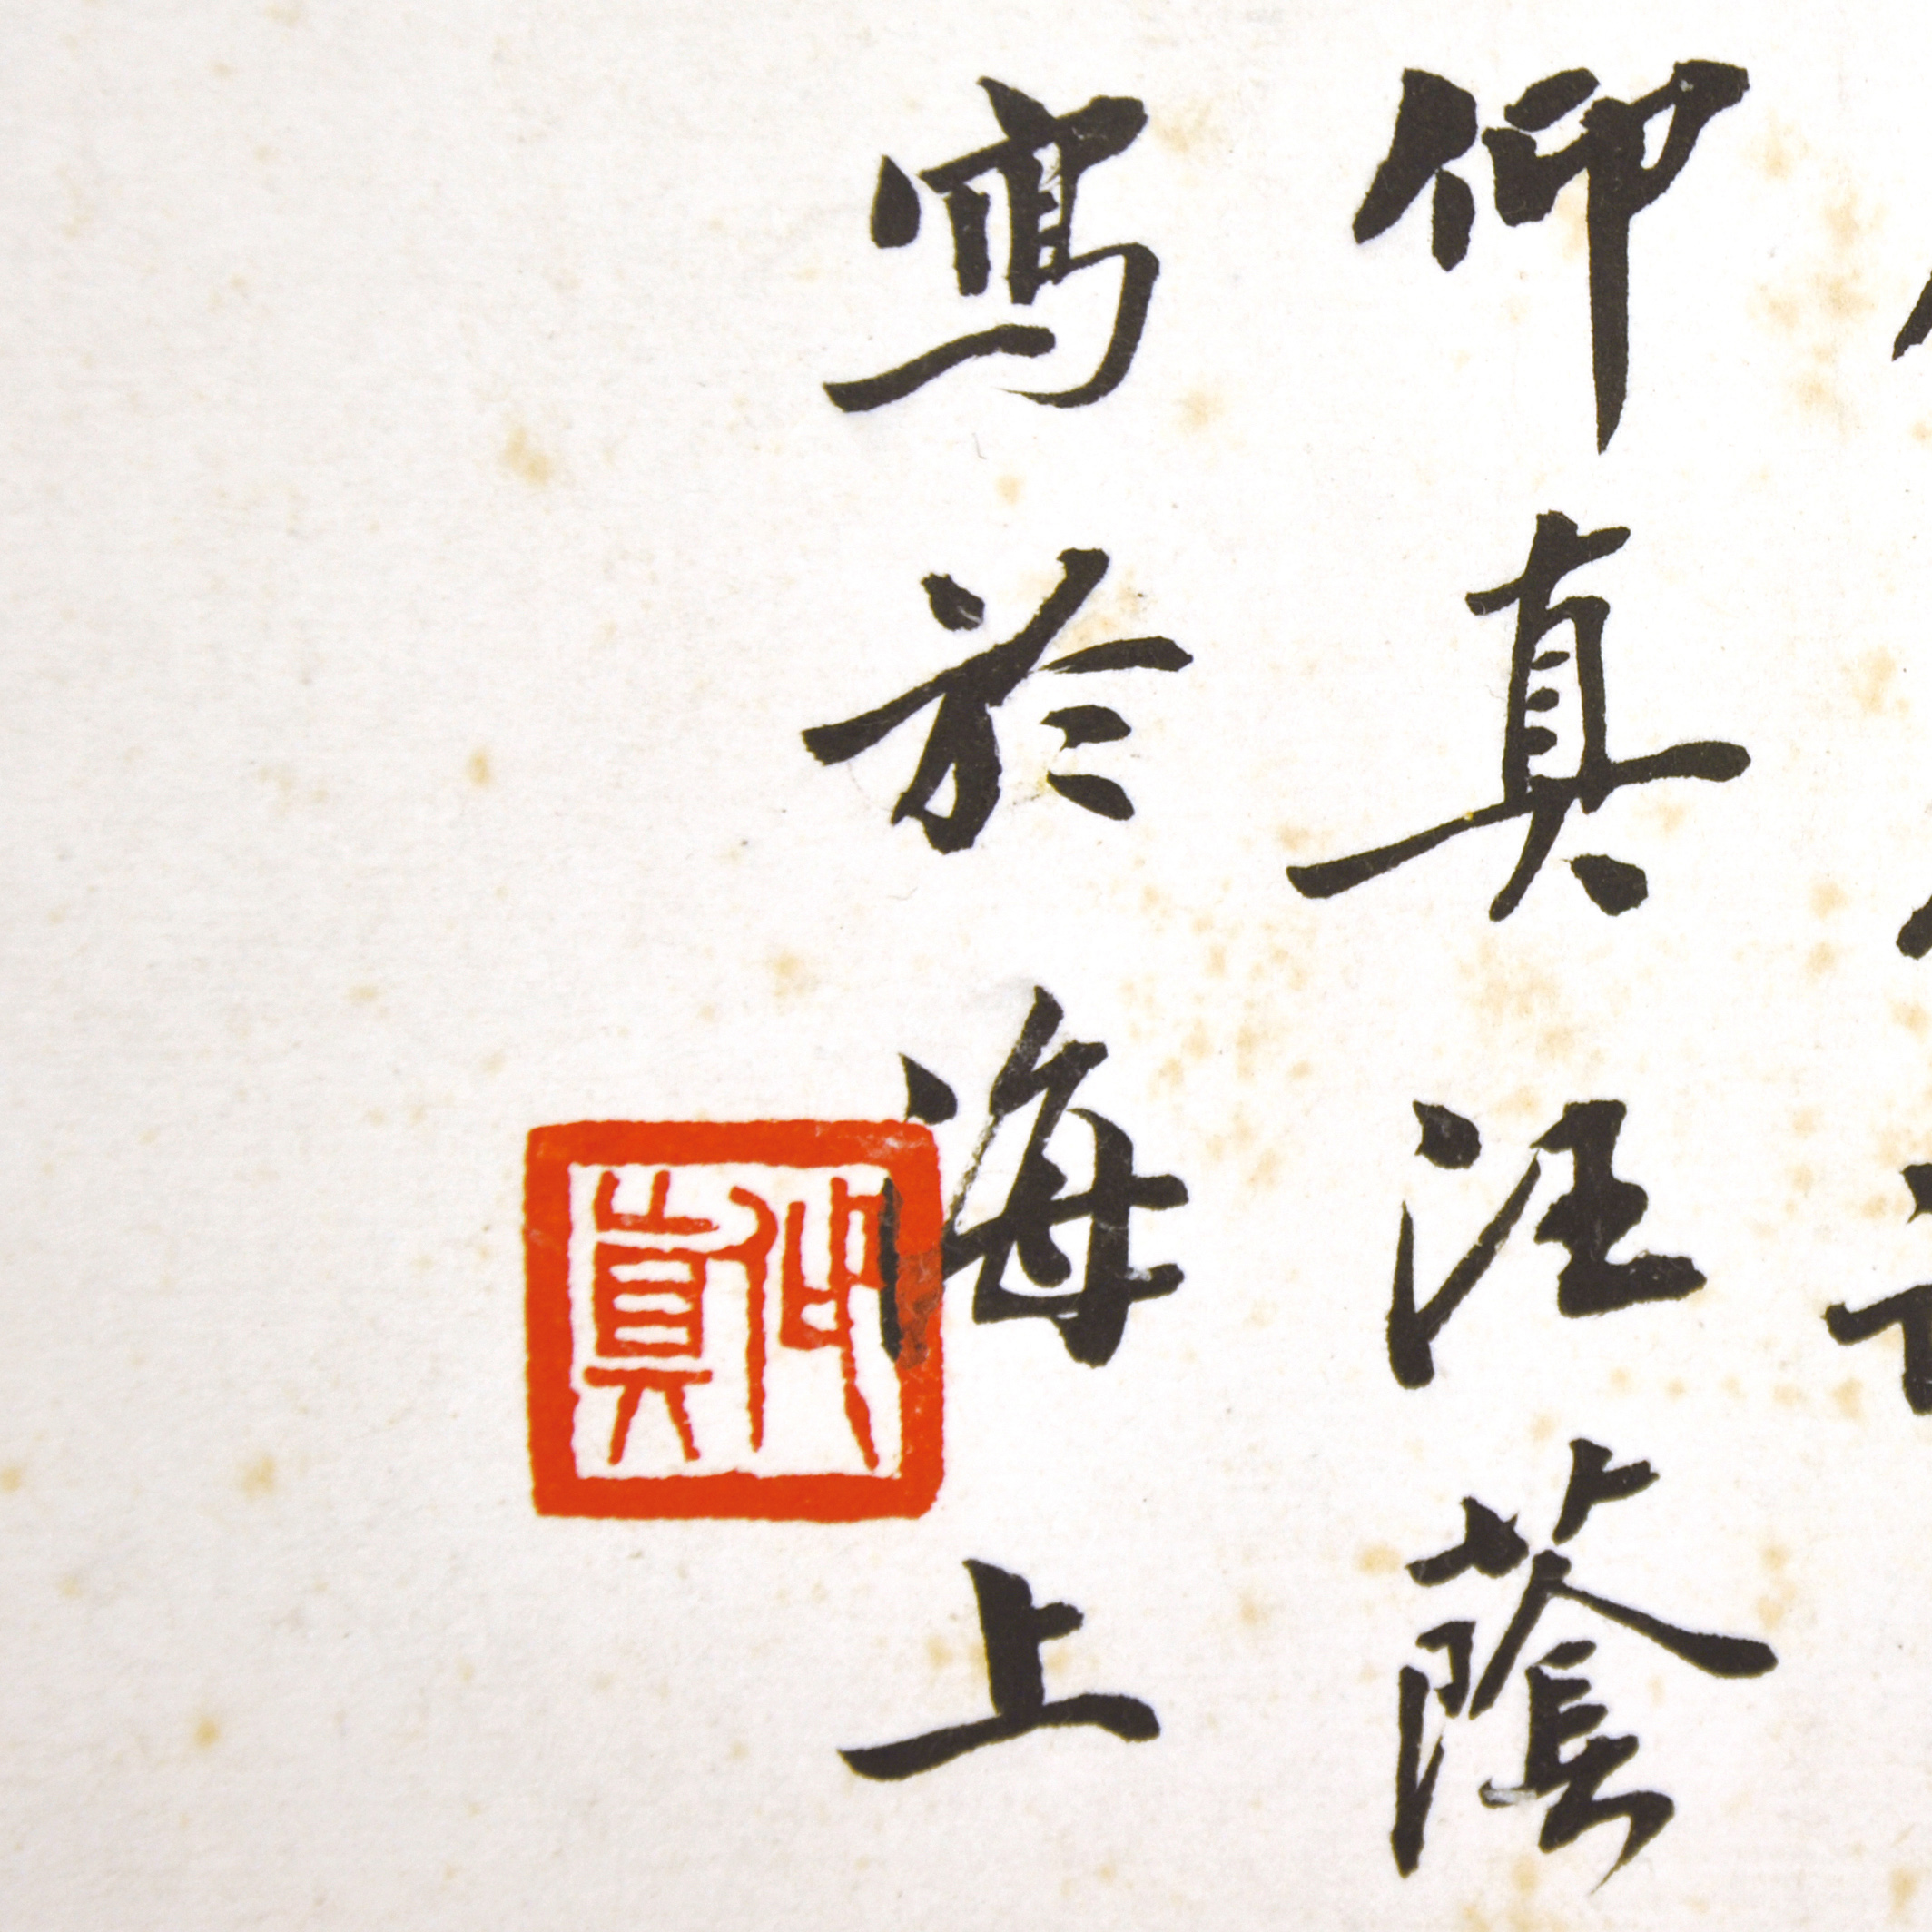 仰真汪蔭
寫於海上
仰真